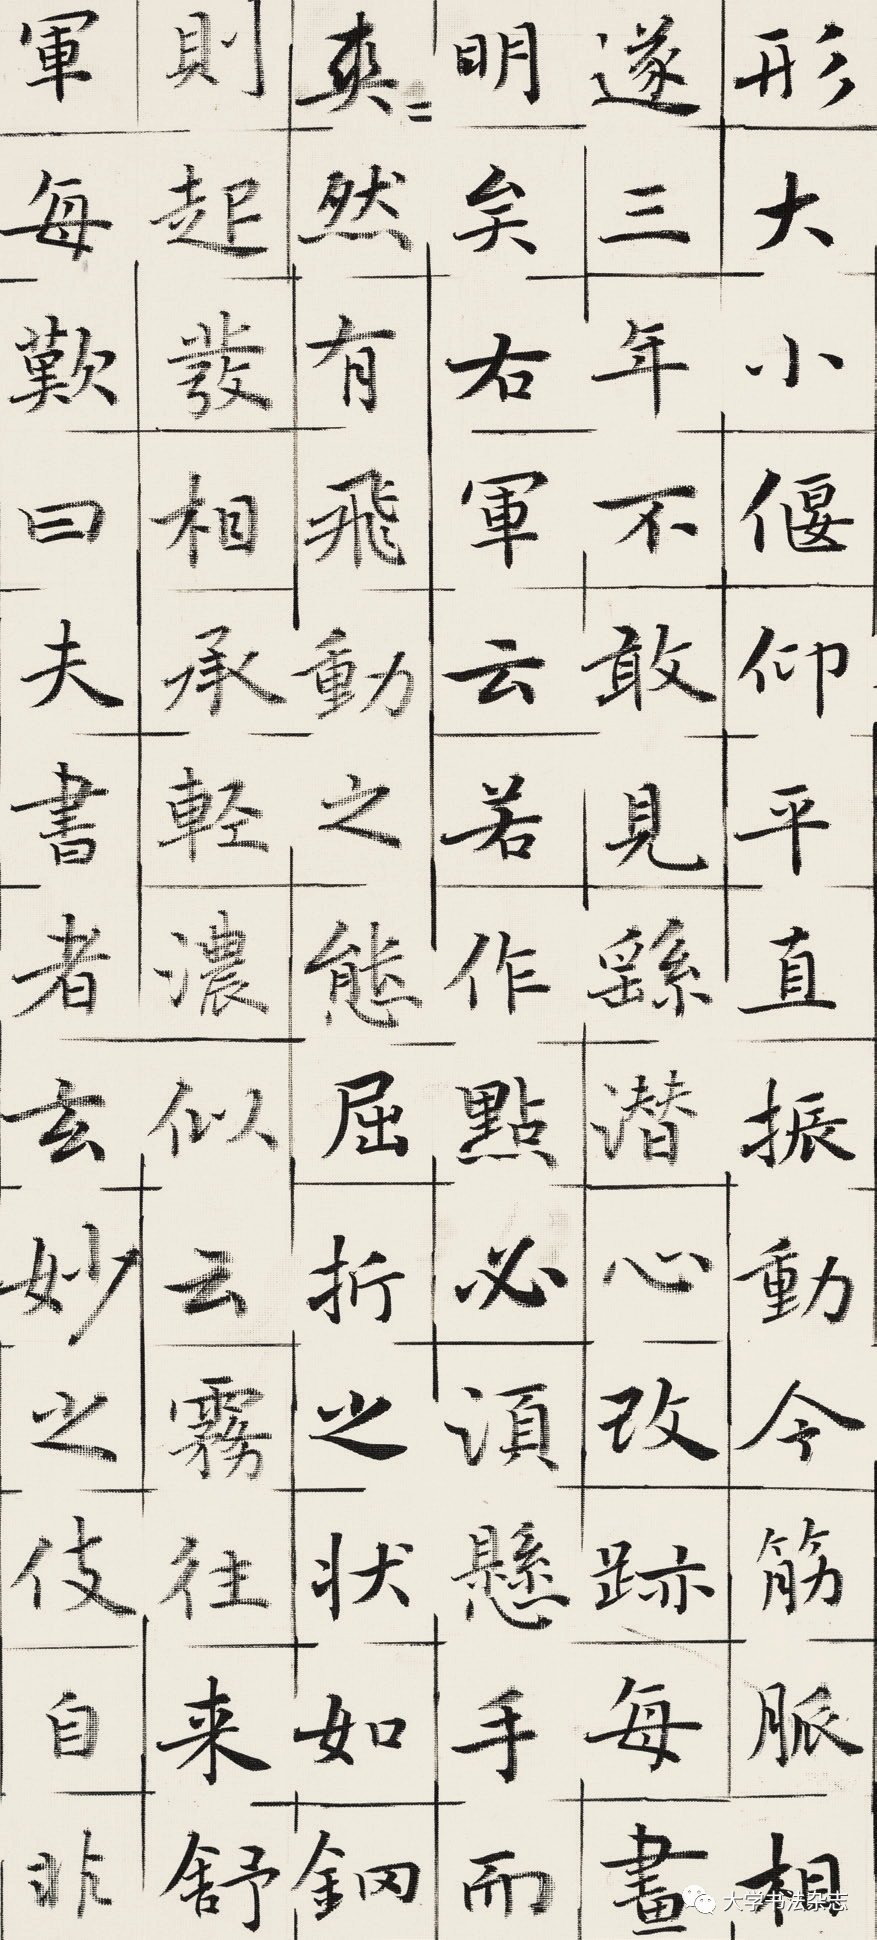 形大小偃仰平直振動今筋脈相
遂三年不敢見繇潜心改跡每畫
明矣右軍云若作點必須懸手而
爽爽然有飛動之態屈折之状如鋼
則起發相承輕濃似云霧往来舒
軍每歎曰夫書者玄妙之伎自非
大学书法杂志